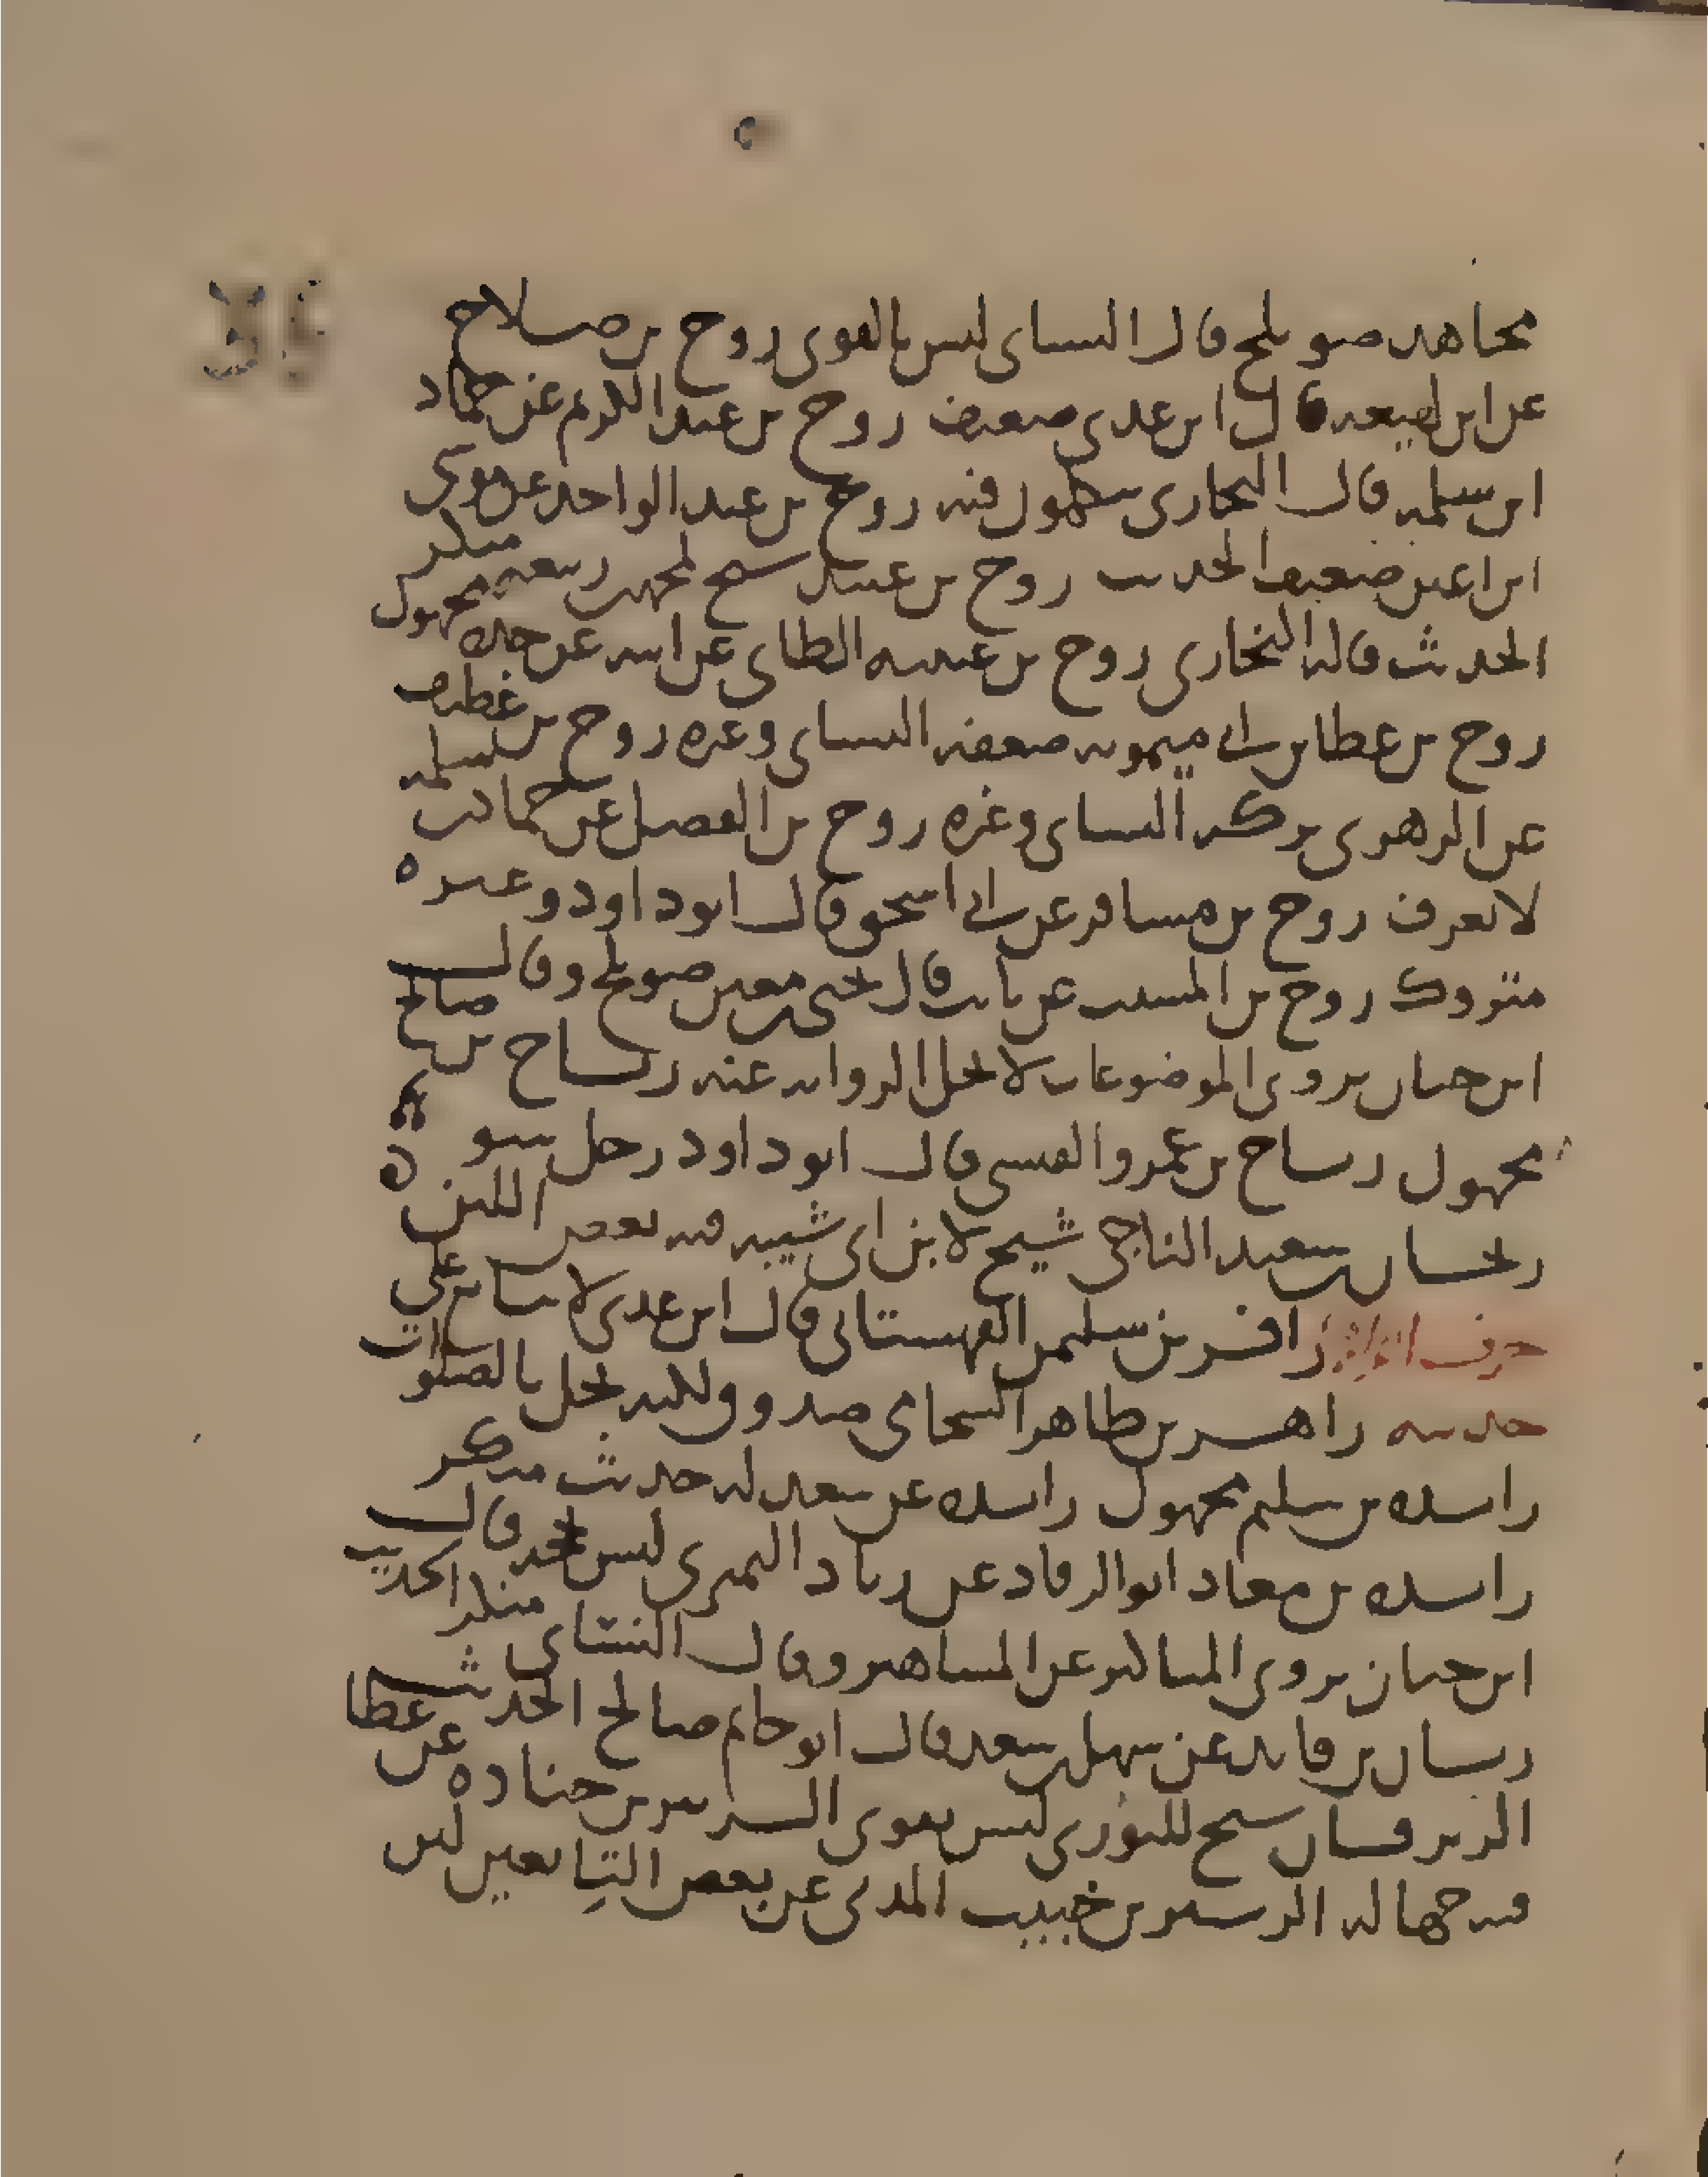 مجاهد صويلح قال النساى ليس بالقوى روح بن صلاح
عن ابن لهيعه قال ابن عدى ضعيف روح بن عبد الكريم عن حماد
ابن سلمه قال البخارى مجهول فيه روح بن عبد الواحد عن موسى
ابن اعين ضعيف الحديث روح بن عبيد شيخ لمحمد بن ربيعه منكر
الحديث قاله البخارى روح بن عنبسه الطاى عن ابيه عن جده مجهول
روح بن عطا بن ابى ميمونه ضعفه النساى وغيره روح بن غطيف
عن الزهرى تركه النساى وغيره روح بن الفضل عن حماد بن سلمه
لا يعرف روح بن مسافر عن ابى اسحق قال ابو داود وغيره
متروك روح بن المسيب عن ثابت قال يحيى بن معين صويلح وقال
ابن حبان يروى الموضوعات لا تحل الروايه عنه رياح بن صالح
مجهول رياح بن عمرو القيسى قال ابو داود رجل سو
ريحان بن سعيد الناجى شيخ لابن ابى شيبه فيه بعض اللين
حرف الزاى زافر بن سليمن القهستانى قال ابن عدى لا يتابع على
حديثه زاهر بن طاهر الشحامى صدوق لكنه يخل بالصلوات
زايده بن سليم مجهول زايده عن سعد له حديث منكر
زايده بن ابى الرقاد عن زياد النميرى ليس بحجه قال
ابن حبان يروى المناكير عن المشاهير وقال النساى منكر الحديث
زبان بن فايد عن سهل بن سعد قال ابو حاتم صالح الحديث
الزبرقان شيخ للثورى ليس بقوى الزبير بن جناده عن عطا
فيه جهاله الزبير بن خبيب المدنى عن بعض التابعين لين